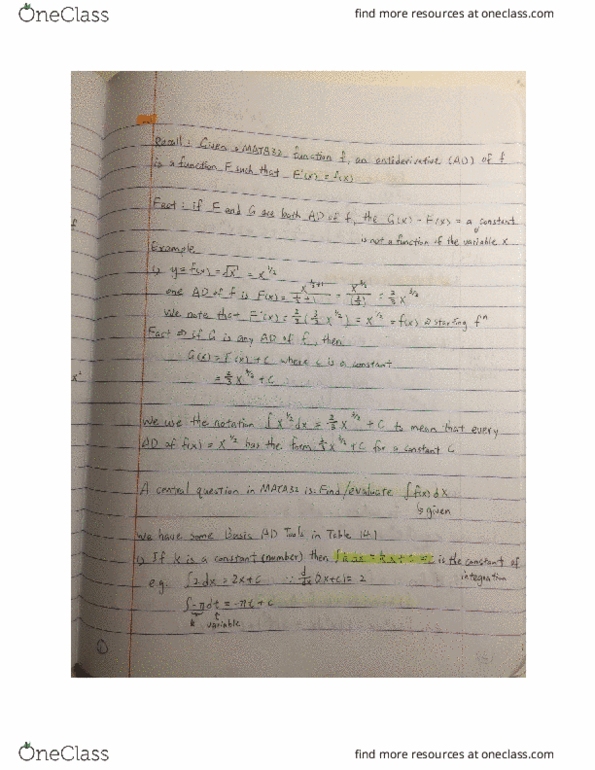 OneClass
find more resources at oneclass.com
Recall: Given a MATA32 function f, an antiderivative (AD) of f
is a function F such that F'(x) = f(x)
Fact: if F and G are both AD of f, the G(x) - F(x) = a constant
is not a function of the variable x
Example
i) y = f(x) = √x = x^{1/2}
one AD of f is F(x) = x^{1/2+1}/(1/2+1) = x^{3/2}/(3/2) = 2/3 x^{3/2}
We note that F'(x) = 2/3 (3/2 x^{1/2}) = x^{1/2} = f(x) starting f^n
Fact if G is any AD of f, then
G(x) = F(x) + C where c is a constant
= 2/3 x^{3/2} + C
We use the notation ∫x^{1/2}dx = 2/3 x^{3/2} + C to mean that every
AD of f(x) = x^{1/2} has the form 2/3 x^{3/2} + C for a constant C
A central question in MATA32 is: Find/evaluate ∫f(x)dx
↳ given
We have some Basis AD Tools in Table 14.1
i) If k is a constant (number) then ∫k dx = kx + C is the constant of
integration
e.g. ∫2dx = 2x + C ∵ d/dx (2x+c) = 2
∫-π dt = -πt + C
k variable
1
x²
f
OneClass
find more resources at oneclass.com